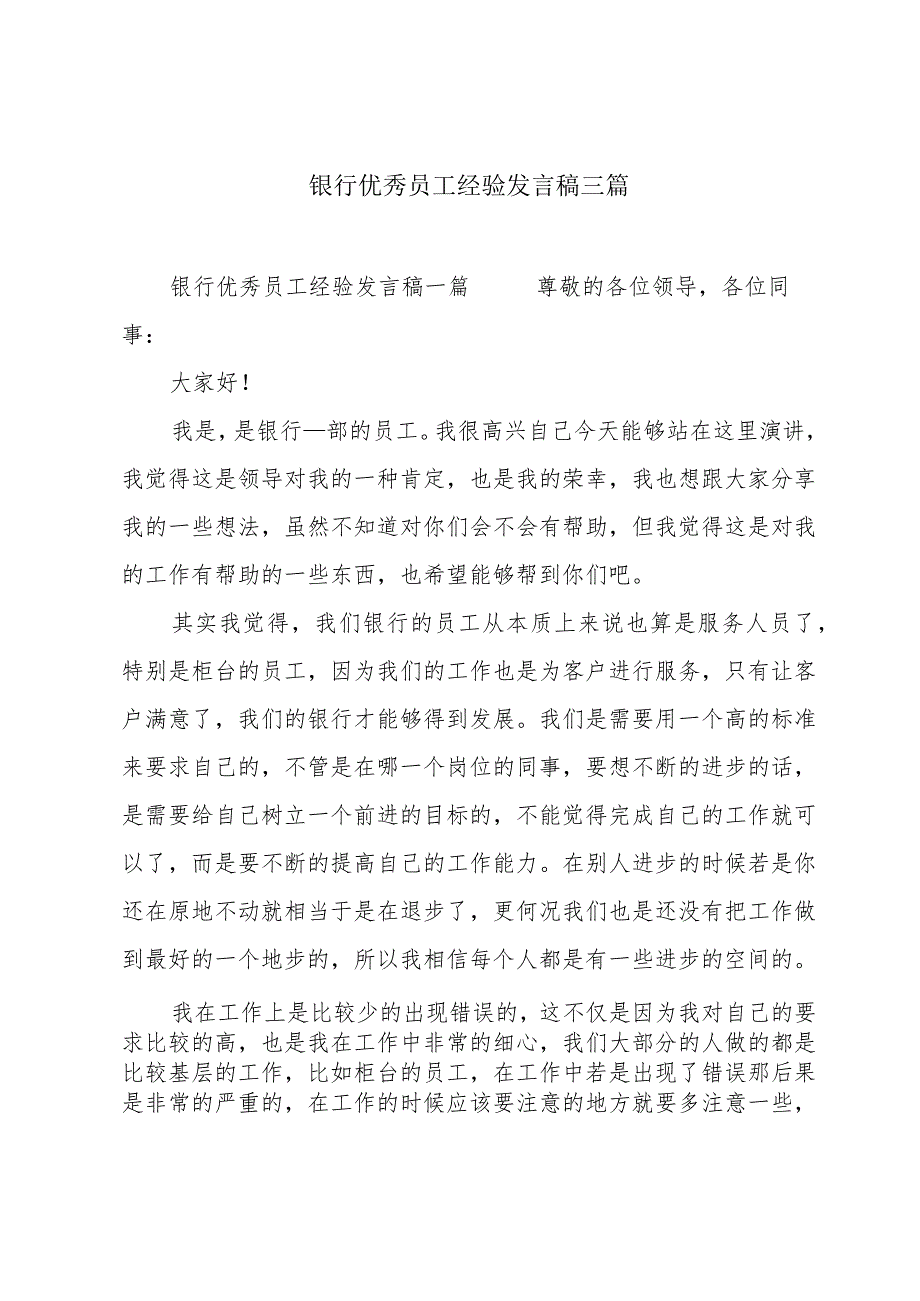 银行优秀员工经验发言稿三篇
银行优秀员工经验发言稿一篇 尊敬的各位领导，各位同
事：
大家好！
我是，是银行—部的员工。我很高兴自己今天能够站在这里演讲，
我觉得这是领导对我的一种肯定，也是我的荣幸，我也想跟大家分享
我的一些想法，虽然不知道对你们会不会有帮助，但我觉得这是对我
的工作有帮助的一些东西，也希望能够帮到你们吧。
其实我觉得，我们银行的员工从本质上来说也算是服务人员了，
特别是柜台的员工，因为我们的工作也是为客户进行服务，只有让客
户满意了，我们的银行才能够得到发展。我们是需要用一个高的标准
来要求自己的，不管是在哪一个岗位的同事，要想不断的进步的话，
是需要给自己树立一个前进的目标的，不能觉得完成自己的工作就可
以了，而是要不断的提高自己的工作能力。在别人进步的时候若是你
还在原地不动就相当于是在退步了，更何况我们也是还没有把工作做
到最好的一个地步的，所以我相信每个人都是有一些进步的空间的。
我在工作上是比较少的出现错误的，这不仅是因为我对自己的要
求比较的高，也是我在工作中非常的细心，我们大部分的人做的都是
比较基层的工作，比如柜台的员工，在工作中若是出现了错误那后果
是非常的严重的，在工作的时候应该要注意的地方就要多注意一些，